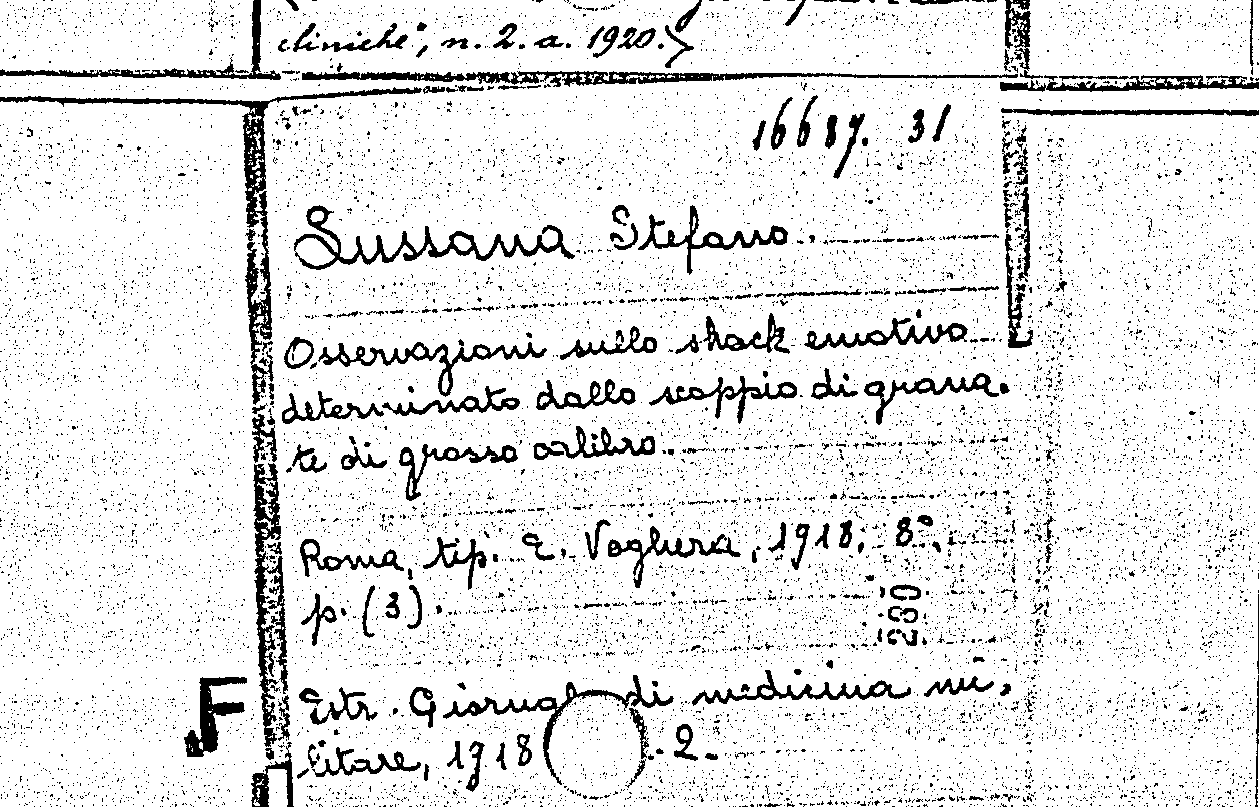 cliniche", n. 2. a. 1920.>
16687. 31
Lussana Stefano.
Osservazioni sullo shock emotivo
determinato dallo scoppio di grana-
te di grosso calibro.
Roma, tip. E. Voghera, 1918; 8°,
p. (3).
280
F
Estr. Giornal di medicina mi-
litare, 1918 . 2.